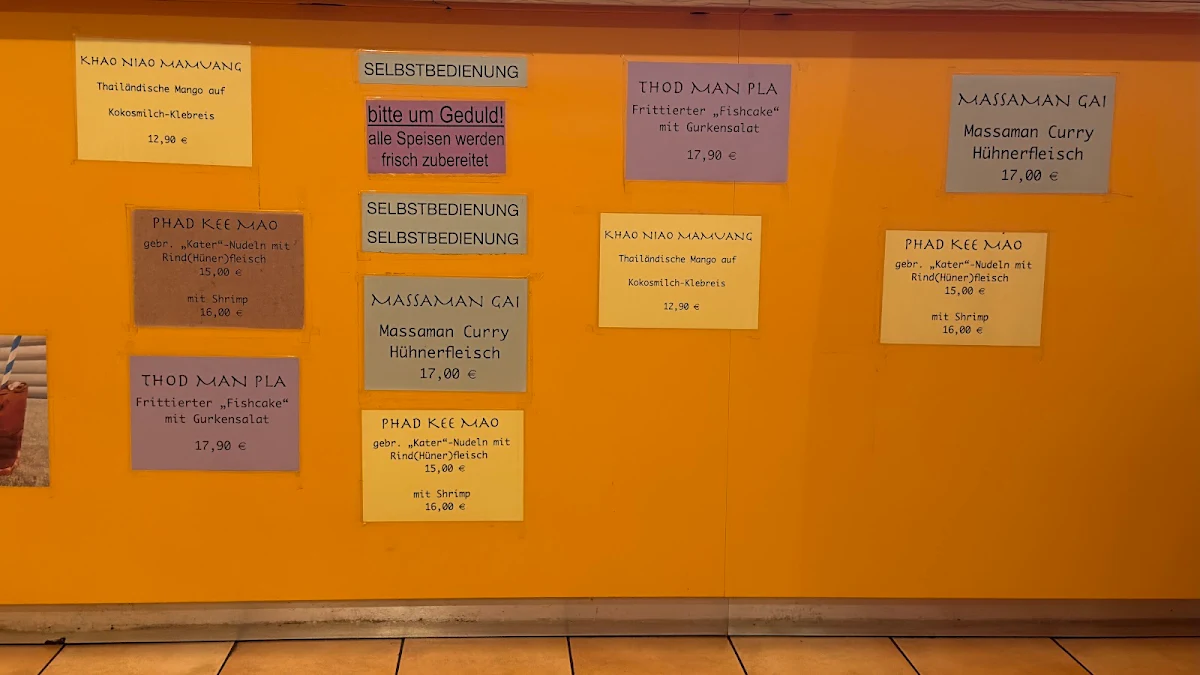 KHAO NIAO MAMUANG
Thailändische Mango auf
Kokosmilch-Klebreis
12,90 €
PHAD KEE MAO
gebr. „Kater“-Nudeln mit
Rind(Hüner)fleisch
15,00 €
mit Shrimp
16,00 €
THOD MAN PLA
Frittierter „Fishcake“
mit Gurkensalat
17,90 €
SELBSTBEDIENUNG
bitte um Geduld!
alle Speisen werden
frisch zubereitet
SELBSTBEDIENUNG
SELBSTBEDIENUNG
MASSAMAN GAI
Massaman Curry
Hühnerfleisch
17,00 €
PHAD KEE MAO
gebr. „Kater“-Nudeln mit
Rind(Hüner)fleisch
15,00 €
mit Shrimp
16,00 €
THOD MAN PLA
Frittierter „Fishcake“
mit Gurkensalat
17,90 €
KHAO NIAO MAMUANG
Thailändische Mango auf
Kokosmilch-Klebreis
12,90 €
MASSAMAN GAI
Massaman Curry
Hühnerfleisch
17,00 €
PHAD KEE MAO
gebr. „Kater“-Nudeln mit
Rind(Hüner)fleisch
15,00 €
mit Shrimp
16,00 €